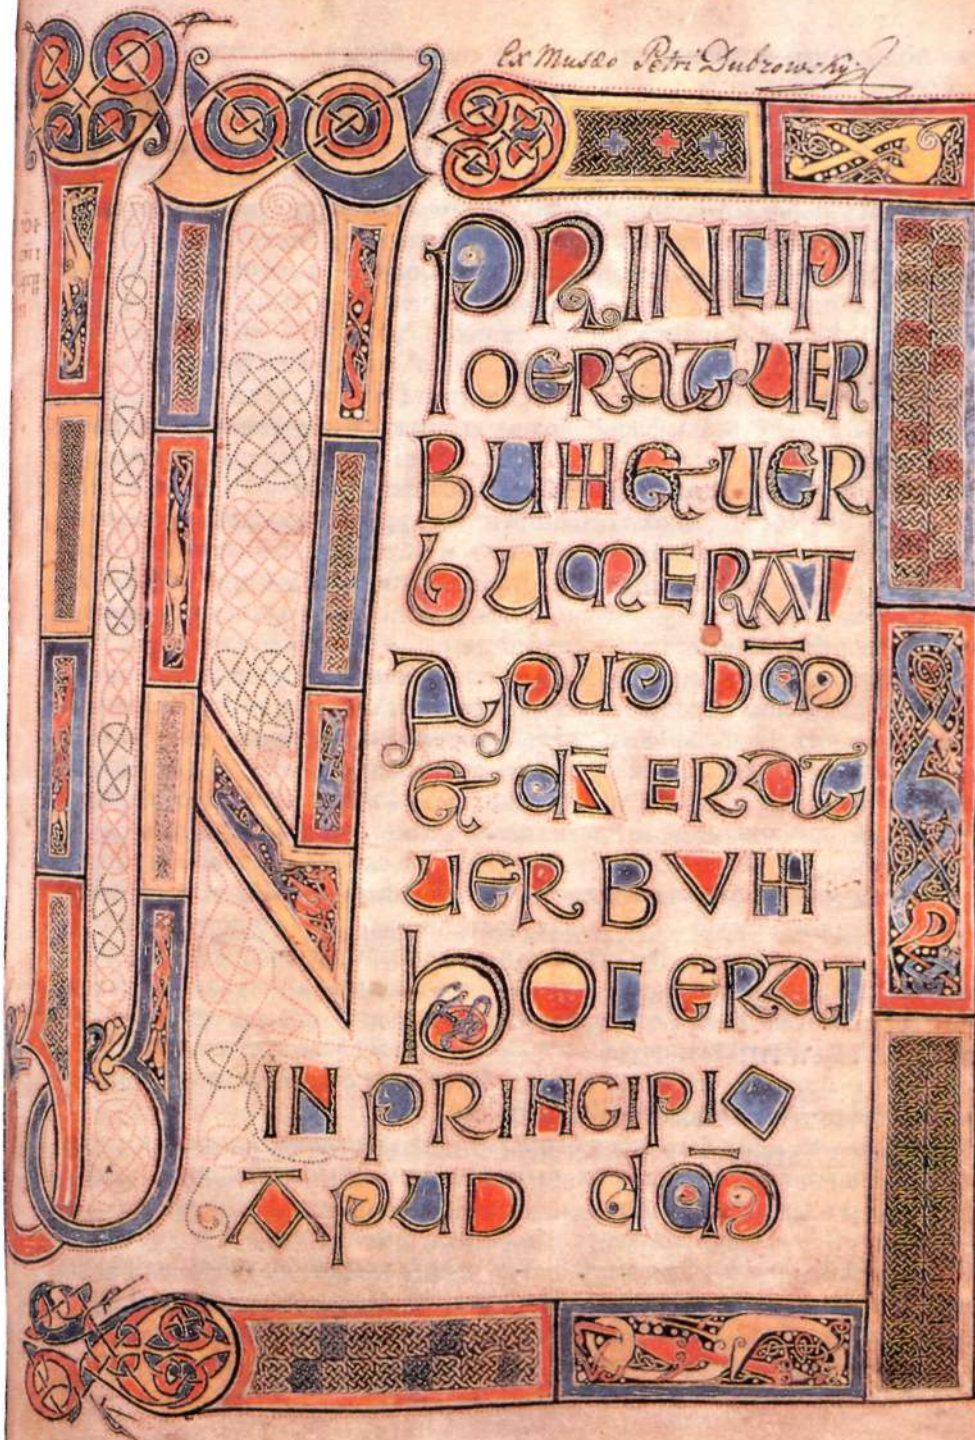 Ex Musæo Petri Dubrowsky
IN PRINCIPI
O ERAT UER
BUM ET UER
bUM ERAT
APUD DM̄
ET dS̄ ERAT
UER BVM
hOC ERAT
IN PRINCIPIO
APUD dM̄